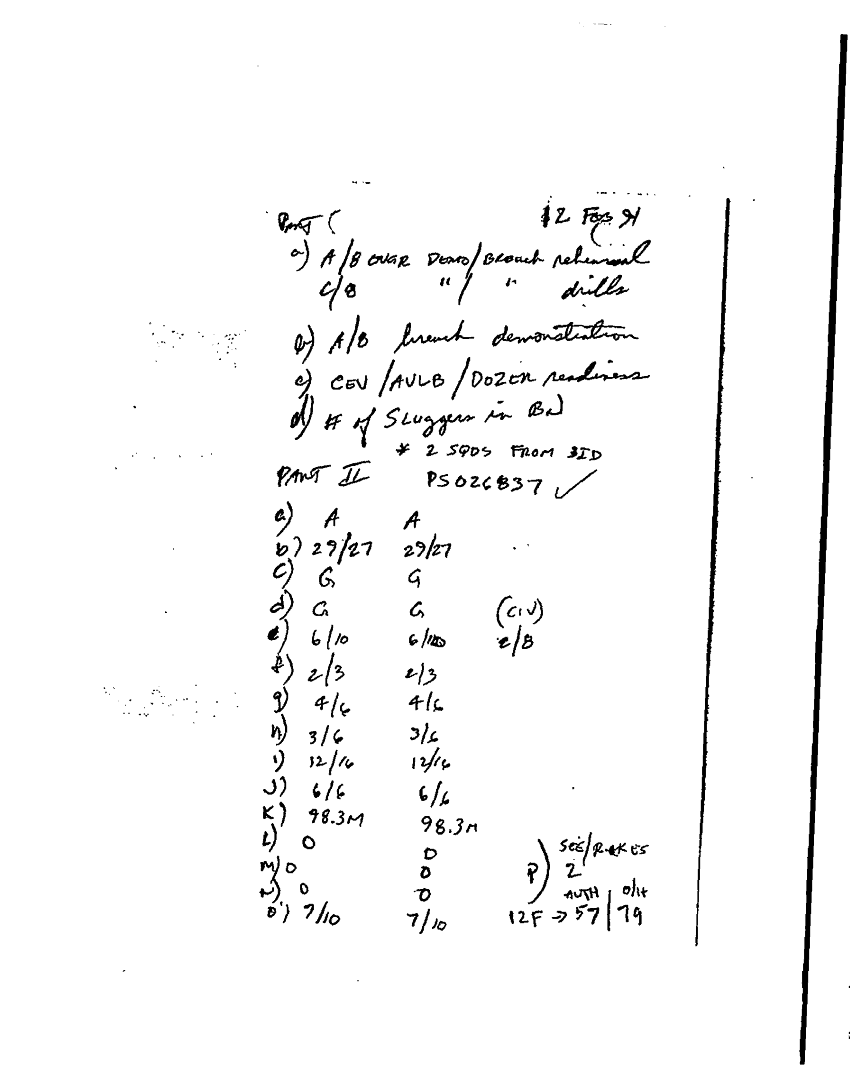 PART I 12 Feb 91
a) A/B ENGR DEMO/BREACH rehearsal
C/B " / " drills
b) A/B breach demonstration
c) CEV/AVLB/DOZER readiness
d) # of SLuggers in Bn
* 2 SQDS FROM 3ID
PART II PS026837 ✓
a) A A
b) 29/27 29/27
c) G G
d) G G (CIV)
e) 6/10 6/10 2/8
f) 2/3 2/3
g) 4/6 4/6
h) 3/6 3/6
i) 12/16 12/16
J) 6/6 6/6
K) 98.3M 98.3M
L) 0 0 SEE/RAKES
M) 0 0 P) 2
N) 0 0 AUTH O/H
O) 7/10 7/10 12F → 57/79